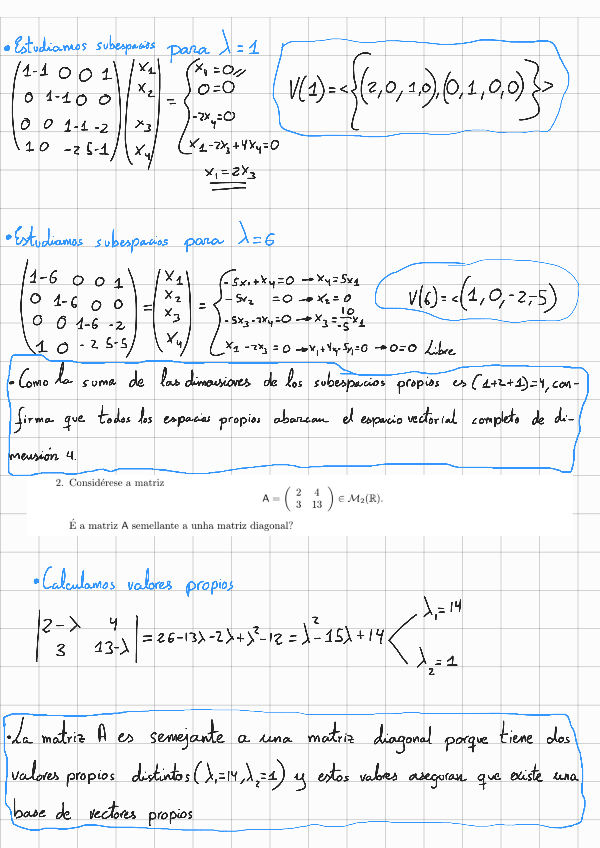 • Estudiamos subespacios para λ=1
(1-1 0 0 1) (x1) {x1=0 V(1)=<{(2,0,1,0),(0,1,0,0)}>
0 1-1 0 0 x2 = 0=0
0 0 1-1 -2 x3 -2x4=0
1 0 -2 5-1 x4 x1-2x3+4x4=0
x1=2x3
• Estudiamos subespacios para λ=6
(1-6 0 0 1) = (x1) = {-5x1+x4=0 → x4=5x1 V(6)=<(1,0,-2,-5)
0 1-6 0 0 x2 -5x2 =0 → x2=0
0 0 1-6 -2 x3 -5x3-2x4=0 → x3=10/-5 x1
1 0 -2 5-5 x4 x1-2x3=0 → x1+4x1-5x1=0 → 0=0 Libre
• Como la suma de las dimensiones de los subespacios propios es (1+2+1)=4, con-
firma que todos los espacios propios abarcan el espacio vectorial completo de di-
mensión 4.
2. Considérese a matriz
A = ( 2 4
3 13 ) ∈ M2(ℝ).
É a matriz A semellante a unha matriz diagonal?
• Calculamos valores propios
|2-λ 4
3 13-λ| = 26-13λ-2λ+λ²-12 = λ²-15λ+14
λ1=14
λ2=1
• La matriz A es semejante a una matriz diagonal porque tiene dos
valores propios distintos (λ1=14, λ2=1) y estos valores aseguran que existe una
base de vectores propios